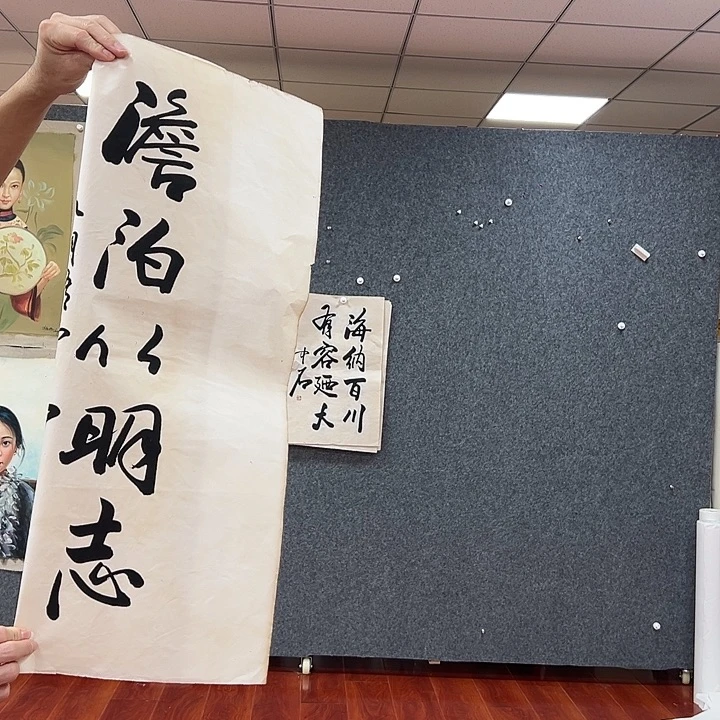 澹泊以明志
海纳百川
有容廼大
中石